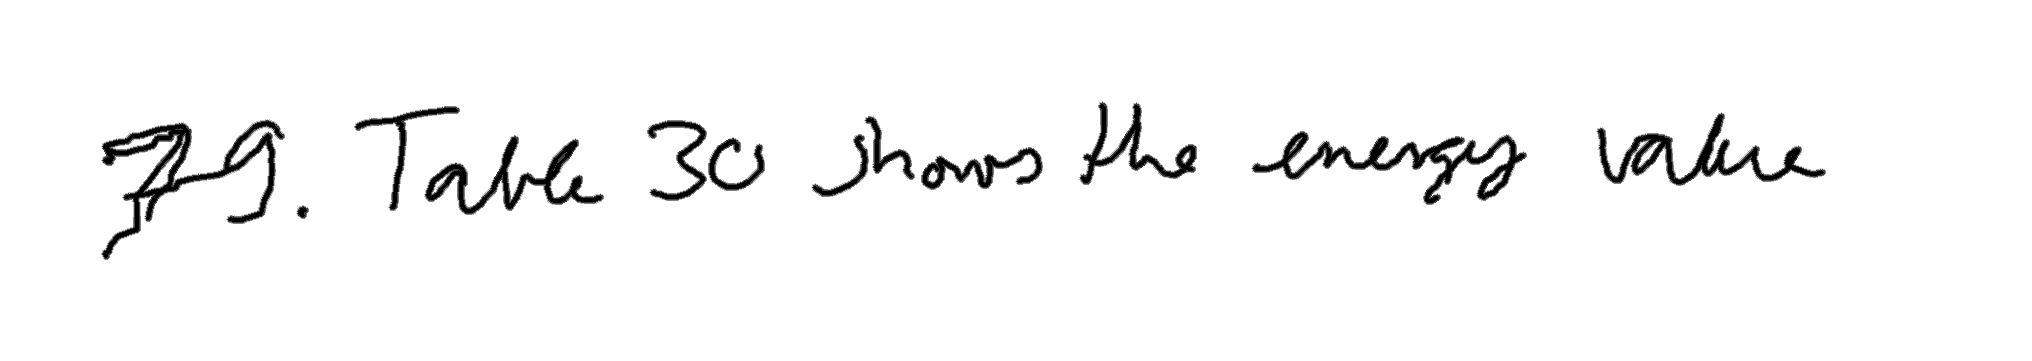 79. Table 30 shows the energy value